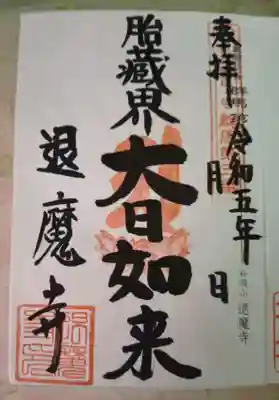 奉拝
令和五年
月
日
胎蔵界
大日如来
退魔寺
退魔寺